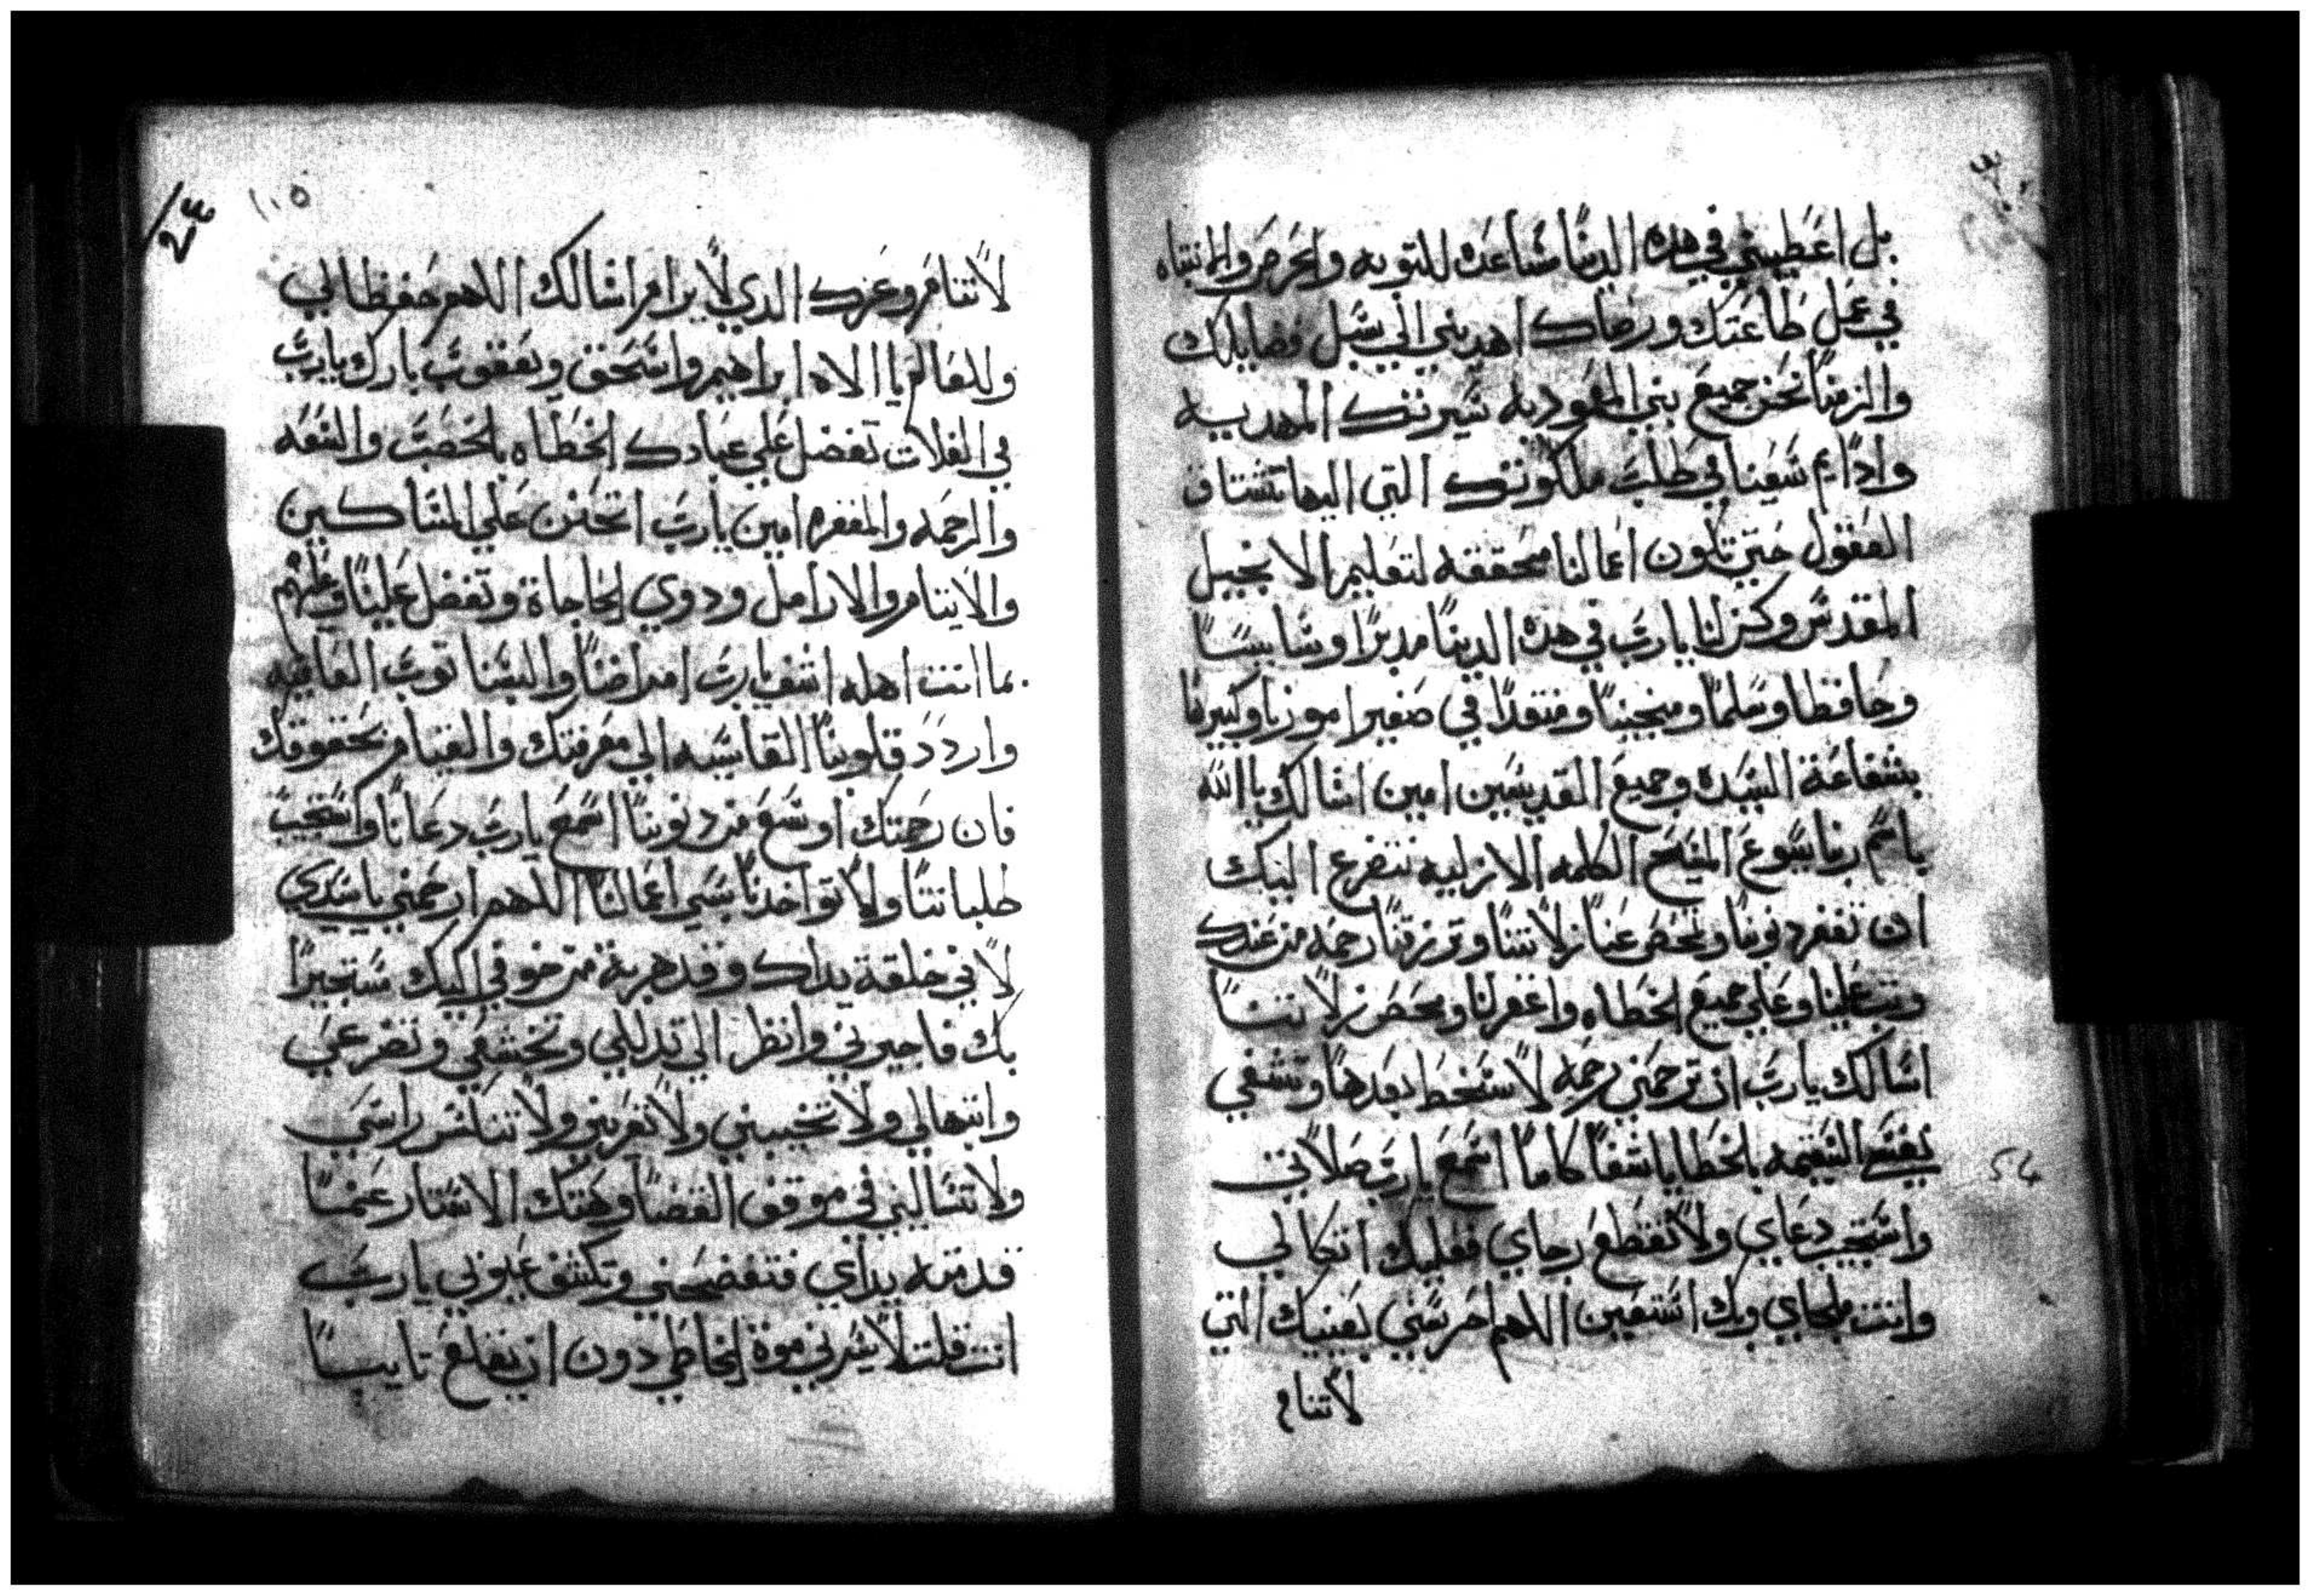 بل اعطيني في هده الدنيا مساعده للتوبه والحرص والانتباه
في عمل طاعتك ورضاك اهديني الي سبل فضايلك
والزمنا نحن جميع بني المعوديه سيرتك المهديه
وادايم سعينا في طلب ملكوتك التي اليها تشتاق
العقول حتي تكون اعمالنا محققه لتعليم الانجيل
المقدس وكن لنا يارب في هده الدنيا مدبرا وسايسا
وحافظا ومسلما ومنجينا ومنقدا في صغير امورنا وكبيرها
بشفاعة السيده وجميع القديسين امين اسالك يا الله
باسم ربنا يسوع المسيح الكلمه الازليه نتضرع اليك
ان تغفر دنوبنا وتمحص عنا زلاتنا وترزقنا رحمه من عندك
وتب علينا وعلي جميع الخطاه واغفر لنا ومحص زلاتنا
اسالك يارب ان ترحمني رحمه لا سخط بعدها وتشفي
نفسي السقيمه بالخطايا شفا كاملا اسمع يارب صلاتي
واستجيب دعاي ولا تقطع رجاي فعليك اتكالي
وانت ملجاي وبك استعين اللاهم احرسني بعينيك التي
لا تنام
١٠٥
لا تنام وعزك الدي لا يرام اسالك اللاهم حفظا لي
وللعالم يا الاه ابراهيم واسحق ويعقوب بارك يارب
في الغلات تفضل علي عبادك الخطاه بالخصب والسعه
والرحمه والمغفره امين يارب اتحنن علي المساكين
والايتام والارامل ودوي الحاجاة وتفضل علينا وعليهم
بما انت اهله اشف يارب امراضنا والبسنا توب العافيه
واردد قلوبنا القاسيه الي معرفتك والقيام بحقوقك
فان رحمتك اوسع من دنوبنا اسمع يارب دعانا واستجب
طلباتنا ولا تواخدنا بسي اعمالنا اللاهم ارحمني ياسيدي
لاني خلقة يداك وقد هربة من خوفي اليك مستجيرا
بك فاجيروني وانظر الي تدللي وتخشعي وتضرعي
وابتهالي ولا تخيبني ولا تعريني ولا تنكس راسي
ولا تسالني في موقف القضا وهتك الاستار عما
قدمته يداي فتفضحني وتكشف عيوبي يارب
انت قلت لا يسرني موة الخاطي دون ان يقلع تايبا